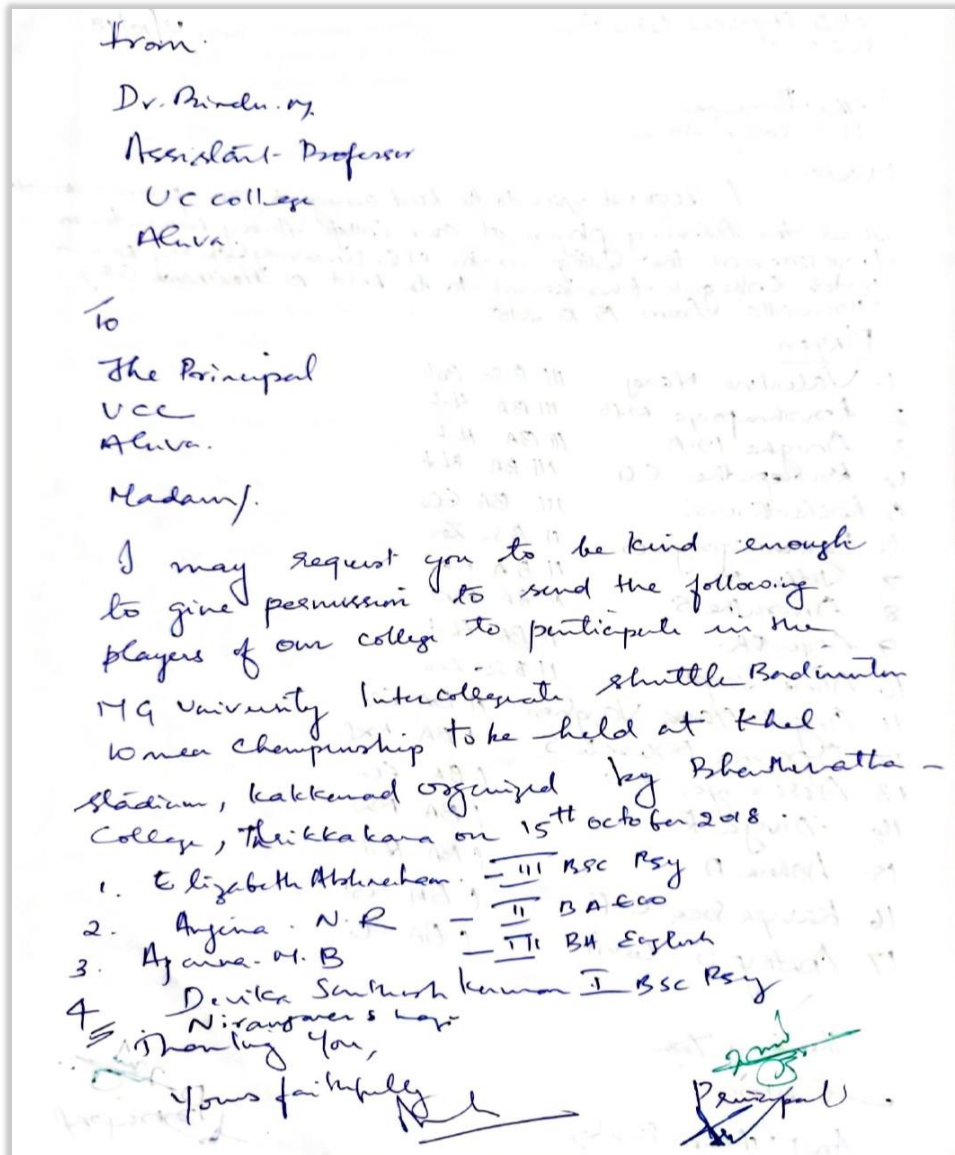 From.
Dr. Bindu. M.
Assistant Professor
UC college
Aluva.
To
The Principal
UCC
Aluva.
Madam/.
I may request you to be kind enough
to give permission to send the following
players of our college to participate in the
MG University Intercollegiate shuttle Badminton
women championship to be held at Khel
stadium, Kakkanad organized by Bharatha-
College, Thrikkakara on 15th october 2018.
1. Elizabeth Abhraham. - III BSC Psy
2. Anjina. N. R - II BA ECO
3. M. B - III BA English
4 Devika Santhosh kumar I BSC Psy
5
Thanking You,
Yours faithfully
Principal.